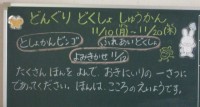 どんぐり どくしょ しゅうかん
11/10(月)〜11/20(木)
としょかんビンゴ
ふれあいどくしょ
よみきかせ 11/12
たくさん ほんを よんで、おきにいりの 一さつに
であってください。ほんは、こころの えいようです。